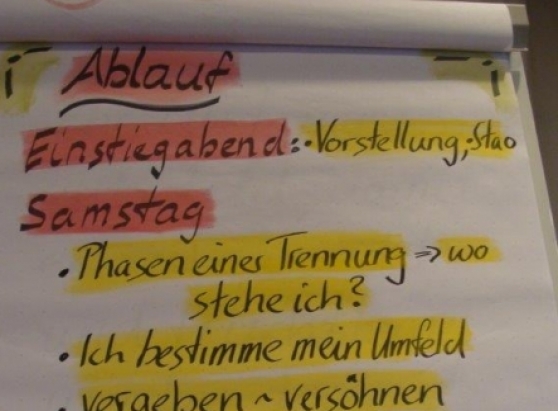 Ablauf
Einstiegabend: • Vorstellung, • Stao
Samstag
• Phasen einer Trennung => wo
stehe ich?
• Ich bestimme mein Umfeld
• vergeben ~ versöhnen